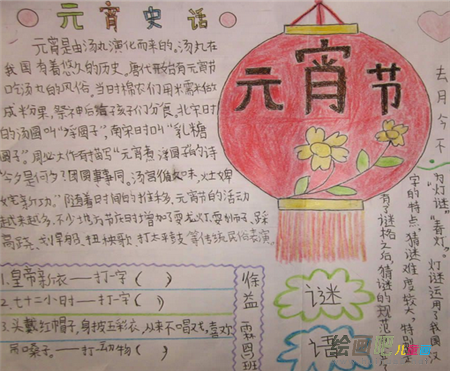 元宵史话
元宵是由汤丸演化而来的,汤丸在
我国有着悠久的历史,唐代就有元宵节
吃汤丸的风俗,当时棉农们用米索丸的
成米分果,祭神后给孩子们分食,北宋时
的汤圆叫"浮圆子",南宋时叫"乳糖
圆子"。周必大作有描写"元宵煮浮圆子的诗
今夕是何夕?团圆事事同。汤官循旧味,灶婢
诧新功。"随着时间的推移,元宵节的活动
越来越多,不少地方节庆时增加了耍龙灯、耍狮子、踩
高跷、划旱船、扭秧歌、打太平鼓等传统民俗表演。
元宵节
1.皇帝新衣——打一字( )
2.七十二小时——打一字( )
3.头戴红帽子,身披五彩衣,从来不唱戏,喜欢
吊嗓子。——打一动物( )
徐益
霖恩班
谜
话
绘画吧
去月今不
为灯谜"
"春灯。灯谜运用了我国汉
字的特点。猜谜难度较大,特别
有了谜格之后,猜谜的规范
儿